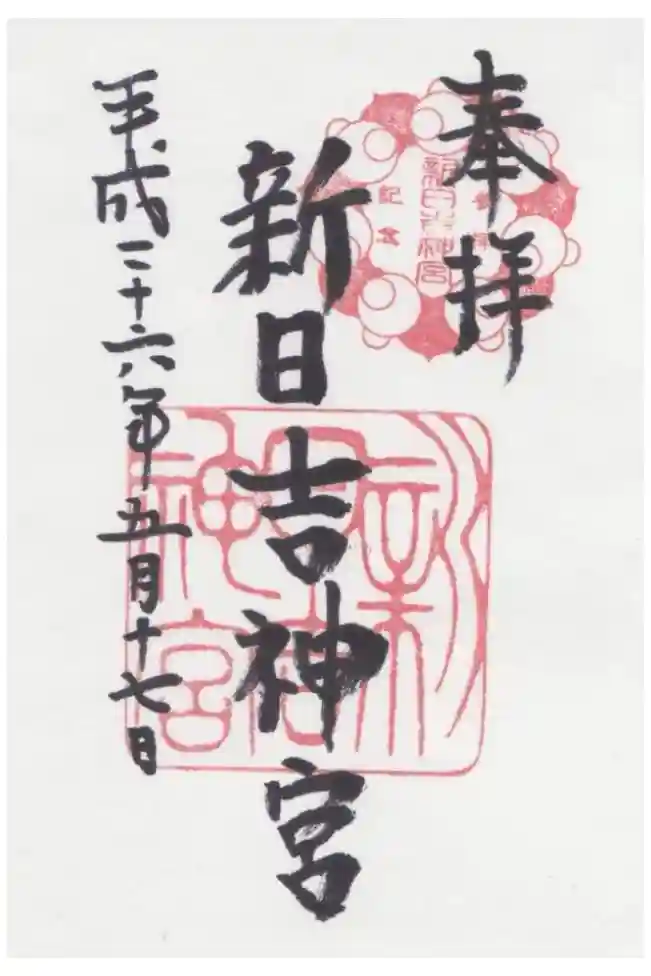 奉拝
参拝
新日吉神宮
記念
新日吉神宮
新日吉神宮
平成二十六年五月十七日